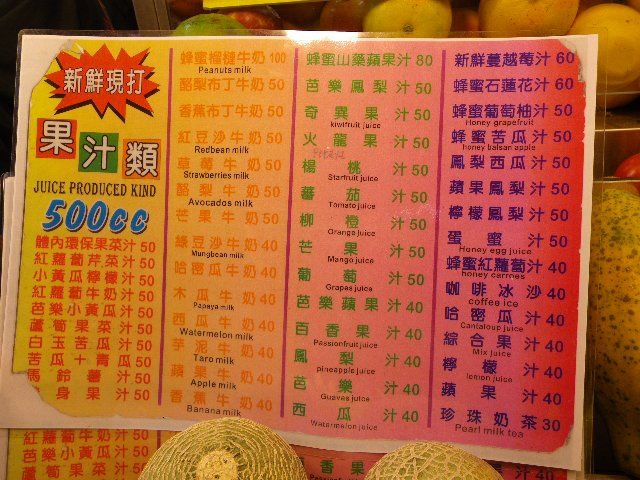 新鮮現打
果汁類
JUICE PRODUCED KIND
500cc
體內環保果菜汁 50
紅蘿蔔芹菜汁 50
小黃瓜檸檬汁 50
紅蘿蔔牛奶汁 50
芭樂小黃瓜汁 50
蘆筍果菜汁 50
白玉苦瓜汁 50
苦瓜十青瓜 50
馬鈴薯汁 50
身果汁 50
蜂蜜榴槤牛奶 100
Peanuts milk
酪梨布丁牛奶 50
香蕉布丁牛奶 50
紅豆沙牛奶 50
Redbean milk
草莓牛奶 50
Strawberries milk
酪梨牛奶 50
Avocados milk
芒果牛奶 50
綠豆沙牛奶 40
Mungbean milk
哈密瓜牛奶 40
木瓜牛奶 40
Papaya milk
西瓜牛奶 40
Watermelon milk
芋泥牛奶 40
Taro milk
蘋果牛奶 40
Apple milk
香蕉牛奶 40
Banana milk
蜂蜜山藥蘋果汁 80
芭樂鳳梨汁 50
奇異果汁 50
kiwifruit juice
火龍果汁 50
楊桃汁 50
Starfruit juice
蕃茄汁 50
Tomato juice
柳橙汁 50
Orange juice
芒果汁 50
Mango juice
葡萄汁 50
Grapes juice
芭樂蘋果汁 40
百香果汁 40
Passionfruit juice
鳳梨汁 40
pineapple juice
芭樂汁 40
Guavas juice
西瓜汁 40
Watermelon juice
新鮮蔓越莓汁 60
蜂蜜石蓮花汁 60
蜂蜜葡萄柚汁 50
Honey grapefruit
蜂蜜苦瓜汁 50
honey balsan apple
鳳梨西瓜汁 50
蘋果鳳梨汁 50
檸檬鳳梨汁 50
蛋蜜汁 50
Honey egg juice
蜂蜜紅蘿蔔汁 40
honey carrnes
咖啡冰沙 40
coffee ice
哈密瓜汁 40
Cantaloup juice
綜合果汁 40
Mix juice
檸檬汁 40
lemon juice
蘋果汁 40
珍珠奶茶 30
Pearl milk tea
紅蘿蔔牛奶汁 50
芭樂小黃瓜汁 50
蘆筍果菜汁 50